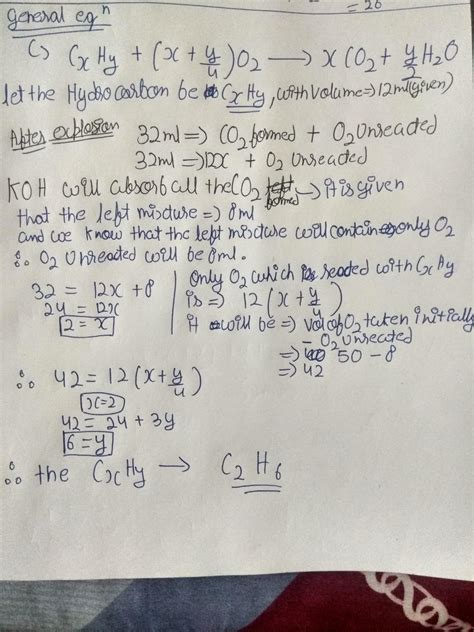 = 20
General eqⁿ
C) CxHy + (x + y/4) O2 ⟶ xCO2 + y/2 H2O
let the Hydrocarbon be CxHy, with volume => 12ml (given)
After explosion 32ml => CO2 formed + O2 Unreacted
32ml => 12x + O2 Unreacted
KOH will absorb all the CO2 formed → it is given
that the left mixture => 8ml
and we know that the left mixture will contain only O2
∴ O2 Unreacted will be 8ml.
32 = 12x + 8
24 = 12x
2 = x
Only O2 which is reacted with CxHy
is => 12 (x + y/4)
it will be => vol of O2 taken initially
- O2 unreacted
=> 50 - 8
=> 42
∴ 42 = 12 (x + y/4)
x=2
42 = 24 + 3y
6 = y
∴ the CxHy → C2H6